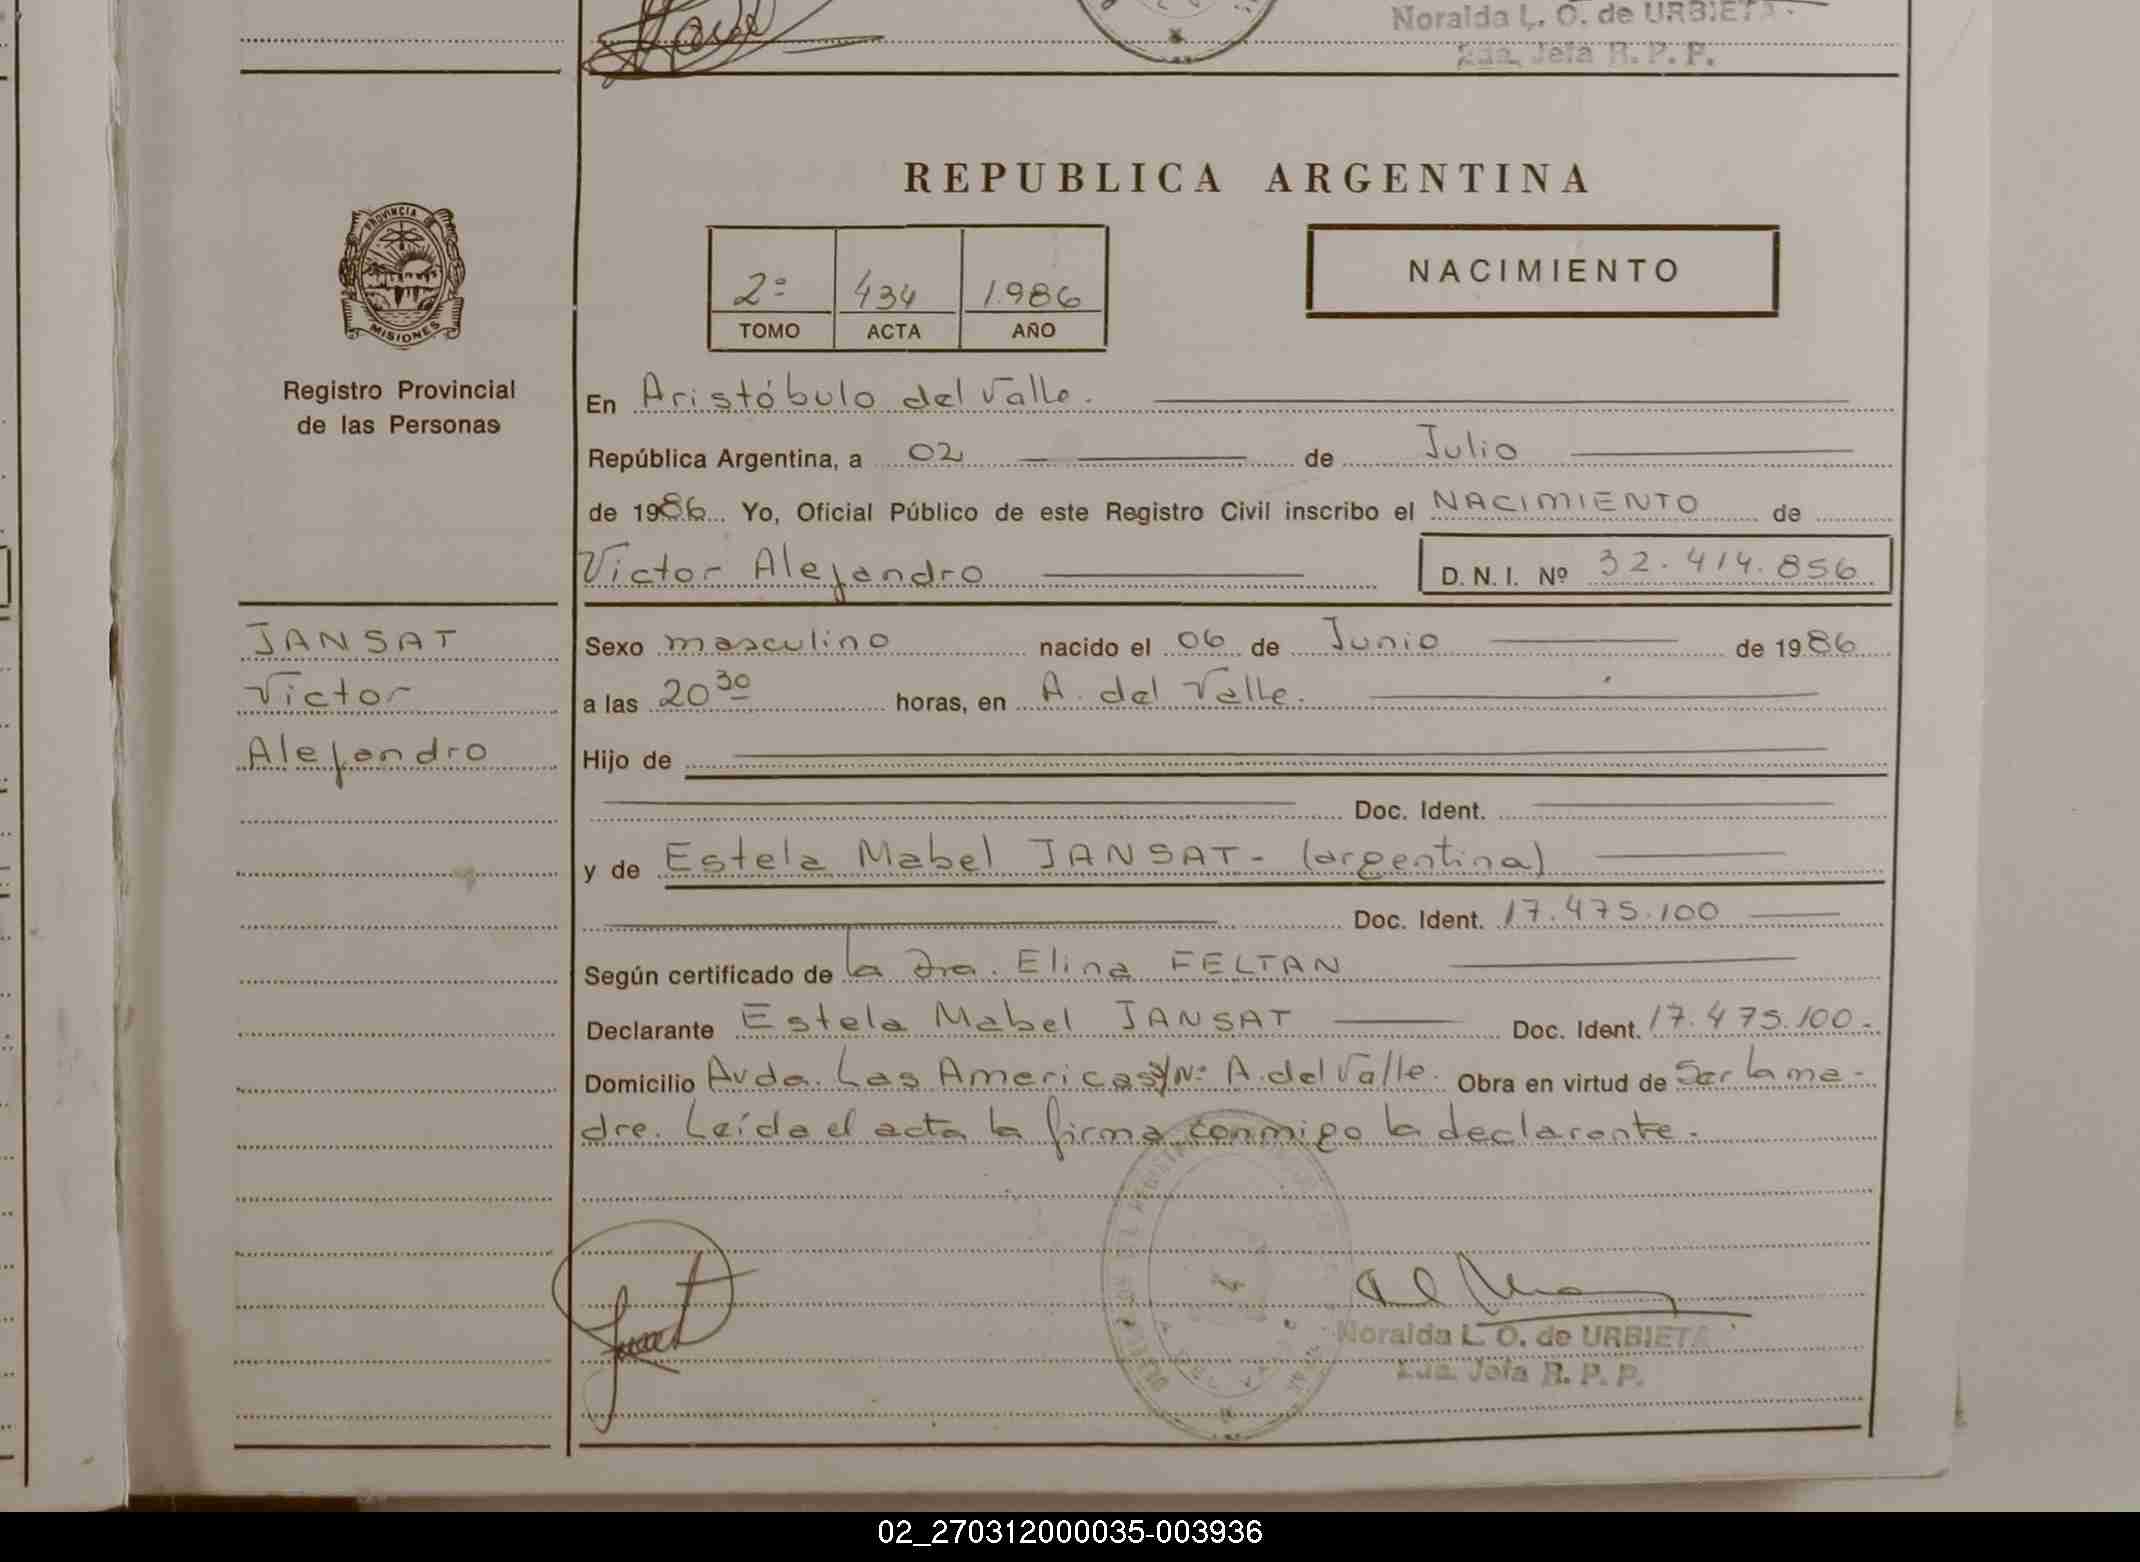 Noralda L. O. de URBIETA
2da. Jefa R. P. P.
REPUBLICA ARGENTINA
PROVINCIA DE
MISIONES
Registro Provincial
de las Personas
2º 434 1.986
TOMO ACTA AÑO
NACIMIENTO
En Aristóbulo del Valle.
República Argentina, a 02 de Julio
de 1986 Yo, Oficial Público de este Registro Civil inscribo el NACIMIENTO de
Victor Alejandro D. N. I. Nº 32.414.856
JANSAT
Victor
Alejandro
Sexo masculino nacido el 06 de Junio de 1986
a las 20 30 horas, en A. del Valle.
Hijo de
Doc. Ident.
y de Estela Mabel JANSAT- (argentina)
Doc. Ident. 17.475.100
Según certificado de la Dra. Elina FELTAN
Declarante Estela Mabel JANSAT Doc. Ident. 17.475.100.-
Domicilio Avda. Las Americas s/Nº A. del Valle. Obra en virtud de Ser la ma-
dre. Leída el acta la firma conmigo la declarante.
Noralda L. O. de URBIETA
2da. Jefa R. P. P.
02_270312000035-003936